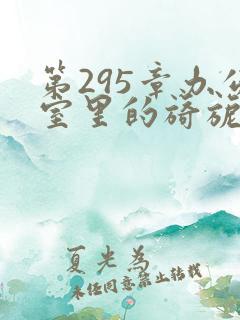 第295章办公
室里的旖旎
夏光为
未经同意禁止转载